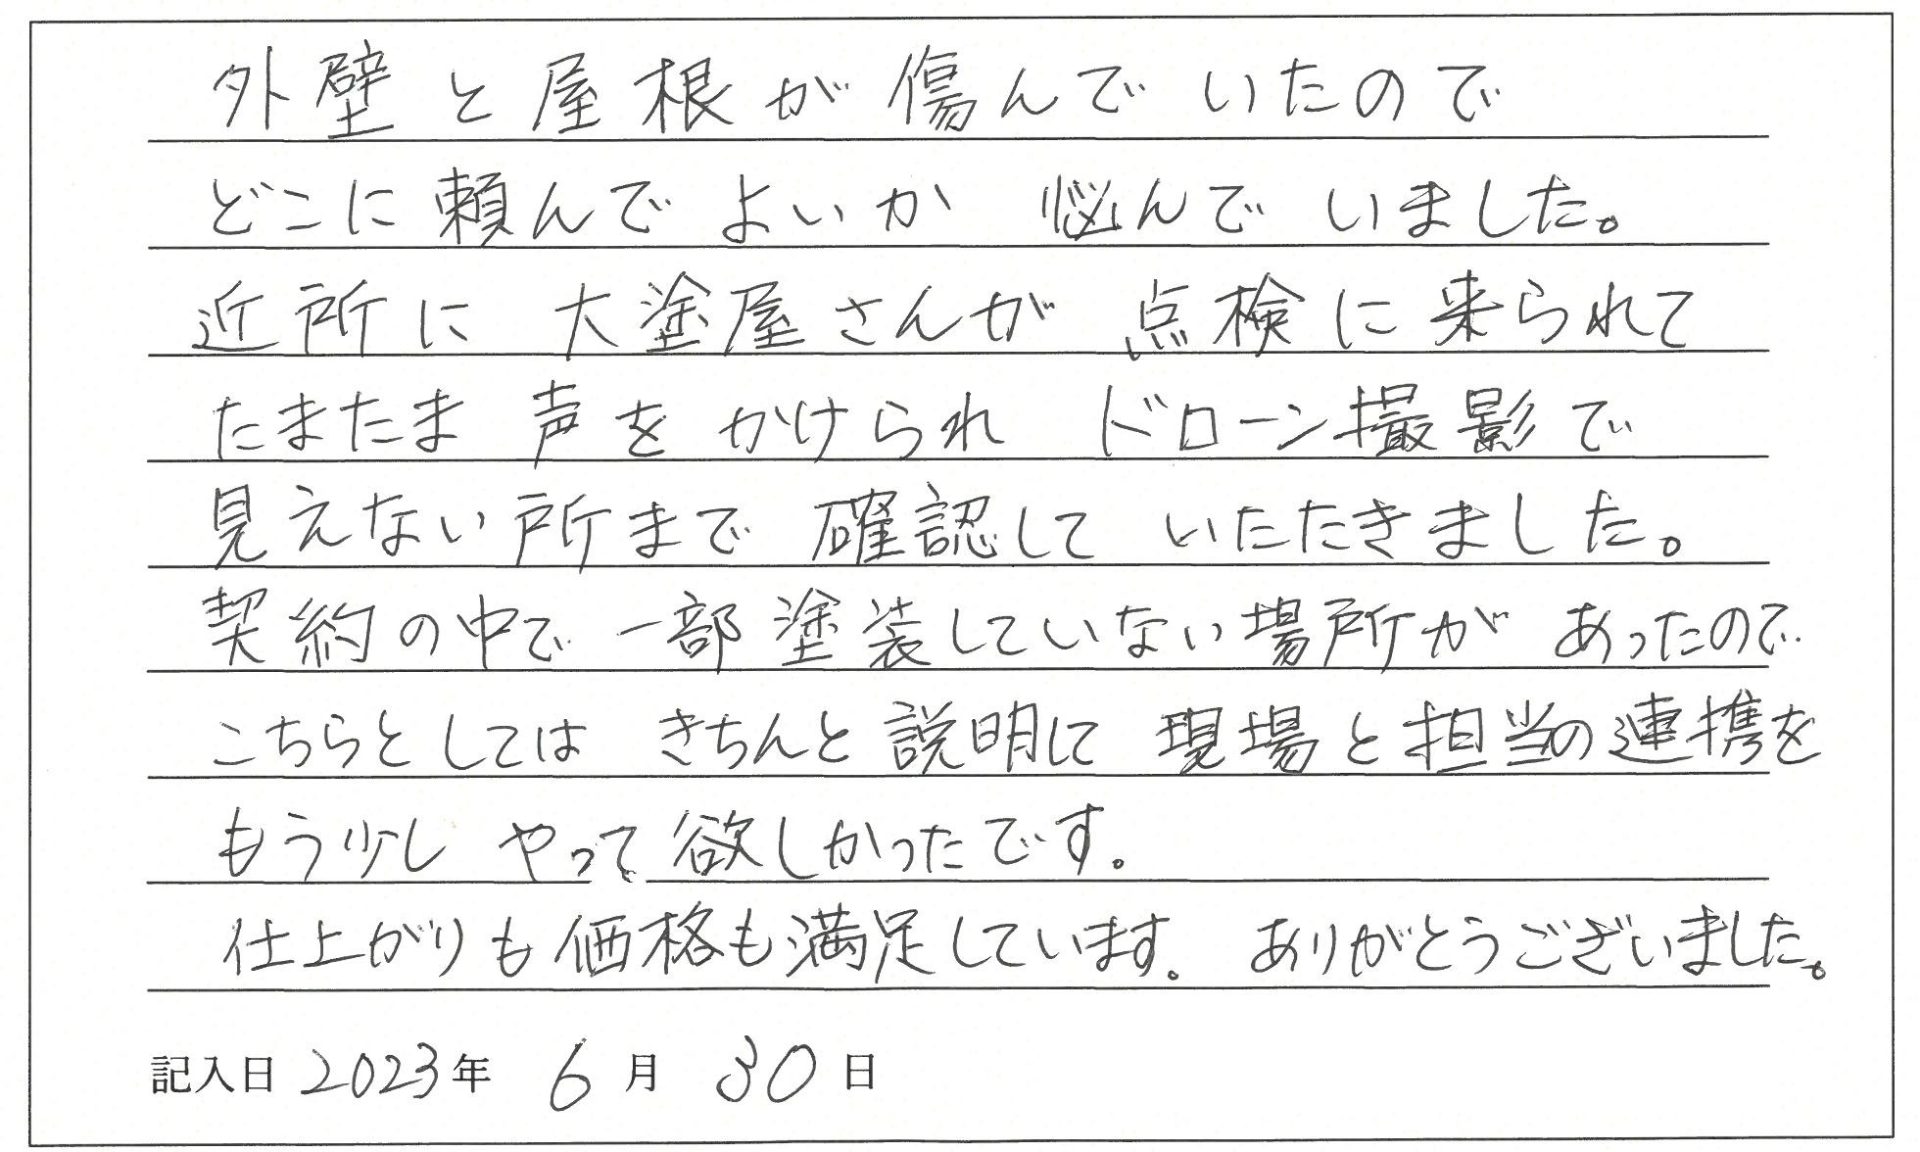 外壁と屋根が傷んでいたので
どこに頼んでよいか 悩んでいました。
近所に 大塗屋さんが 点検に来られて
たまたま 声を かけられ ドローン撮影で
見えない所まで 確認して いたたきました。
契約の中で 一部塗装していない場所が あったので
こちらとしては きちんと説明して 現場と担当の連携を
もう少し やって欲しかったです。
仕上がりも価格も満足しています。 ありがとうございました。
記入日 2023年 6月 30日